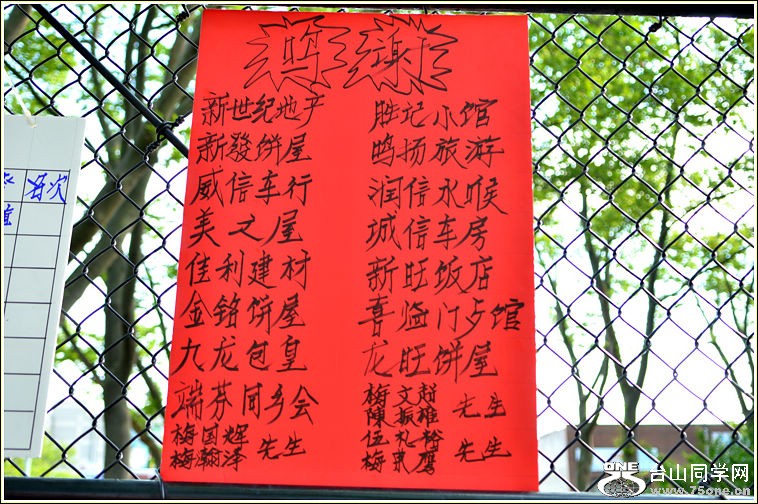 鸣谢
新世纪地产
新發饼屋
威信车行
美之屋
佳利建材
金铭饼屋
九龙包皇
端芬同乡会
梅国辉
梅瀚泽 先生
胜记小馆
鸣扬旅游
润信水喉
诚信车房
新旺饭店
喜临门 馆
龙旺饼屋
梅文超
陳振雄 先生
伍礼裕
梅東鹰 先生
名次
ONE
台山同学网
www.75one.cn